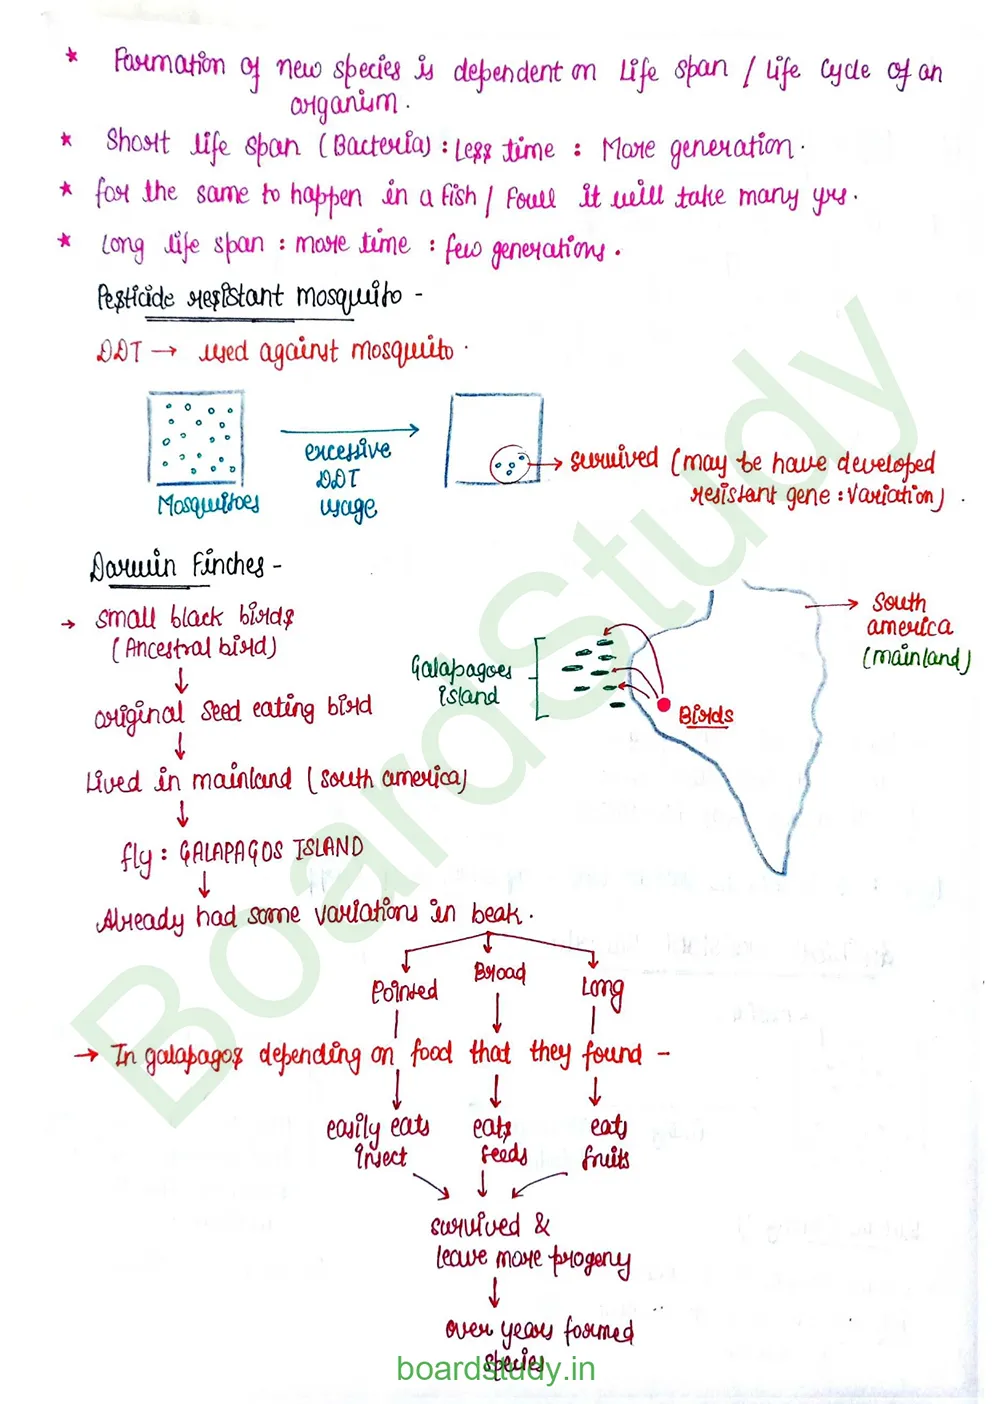 ★ Formation of new species is dependent on life span / life cycle of an
organism.
★ Short life span (Bacteria) : Less time : More generation.
★ for the same to happen in a fish / fowl it will take many yrs.
★ Long life span : more time : few generations.
Pesticide resistant mosquito -
DDT → used against mosquito.
excessive
DDT
usage
Mosquitoes
survived (may be have developed
resistant gene : variation)
Darwin Finches -
→ small black birds
(Ancestral bird)
original seed eating bird
Lived in mainland (south america)
fly : GALAPAGOS ISLAND
Already had some variations in beak.
Galapagoes
island
Birds
south
america
(mainland)
Pointed
Broad
Long
→ In galapagos depending on food that they found -
easily eats
insect
eats
seeds
eats
fruits
survived &
leave more progeny
over years formed
species
boardstudy.in
BoardStudy